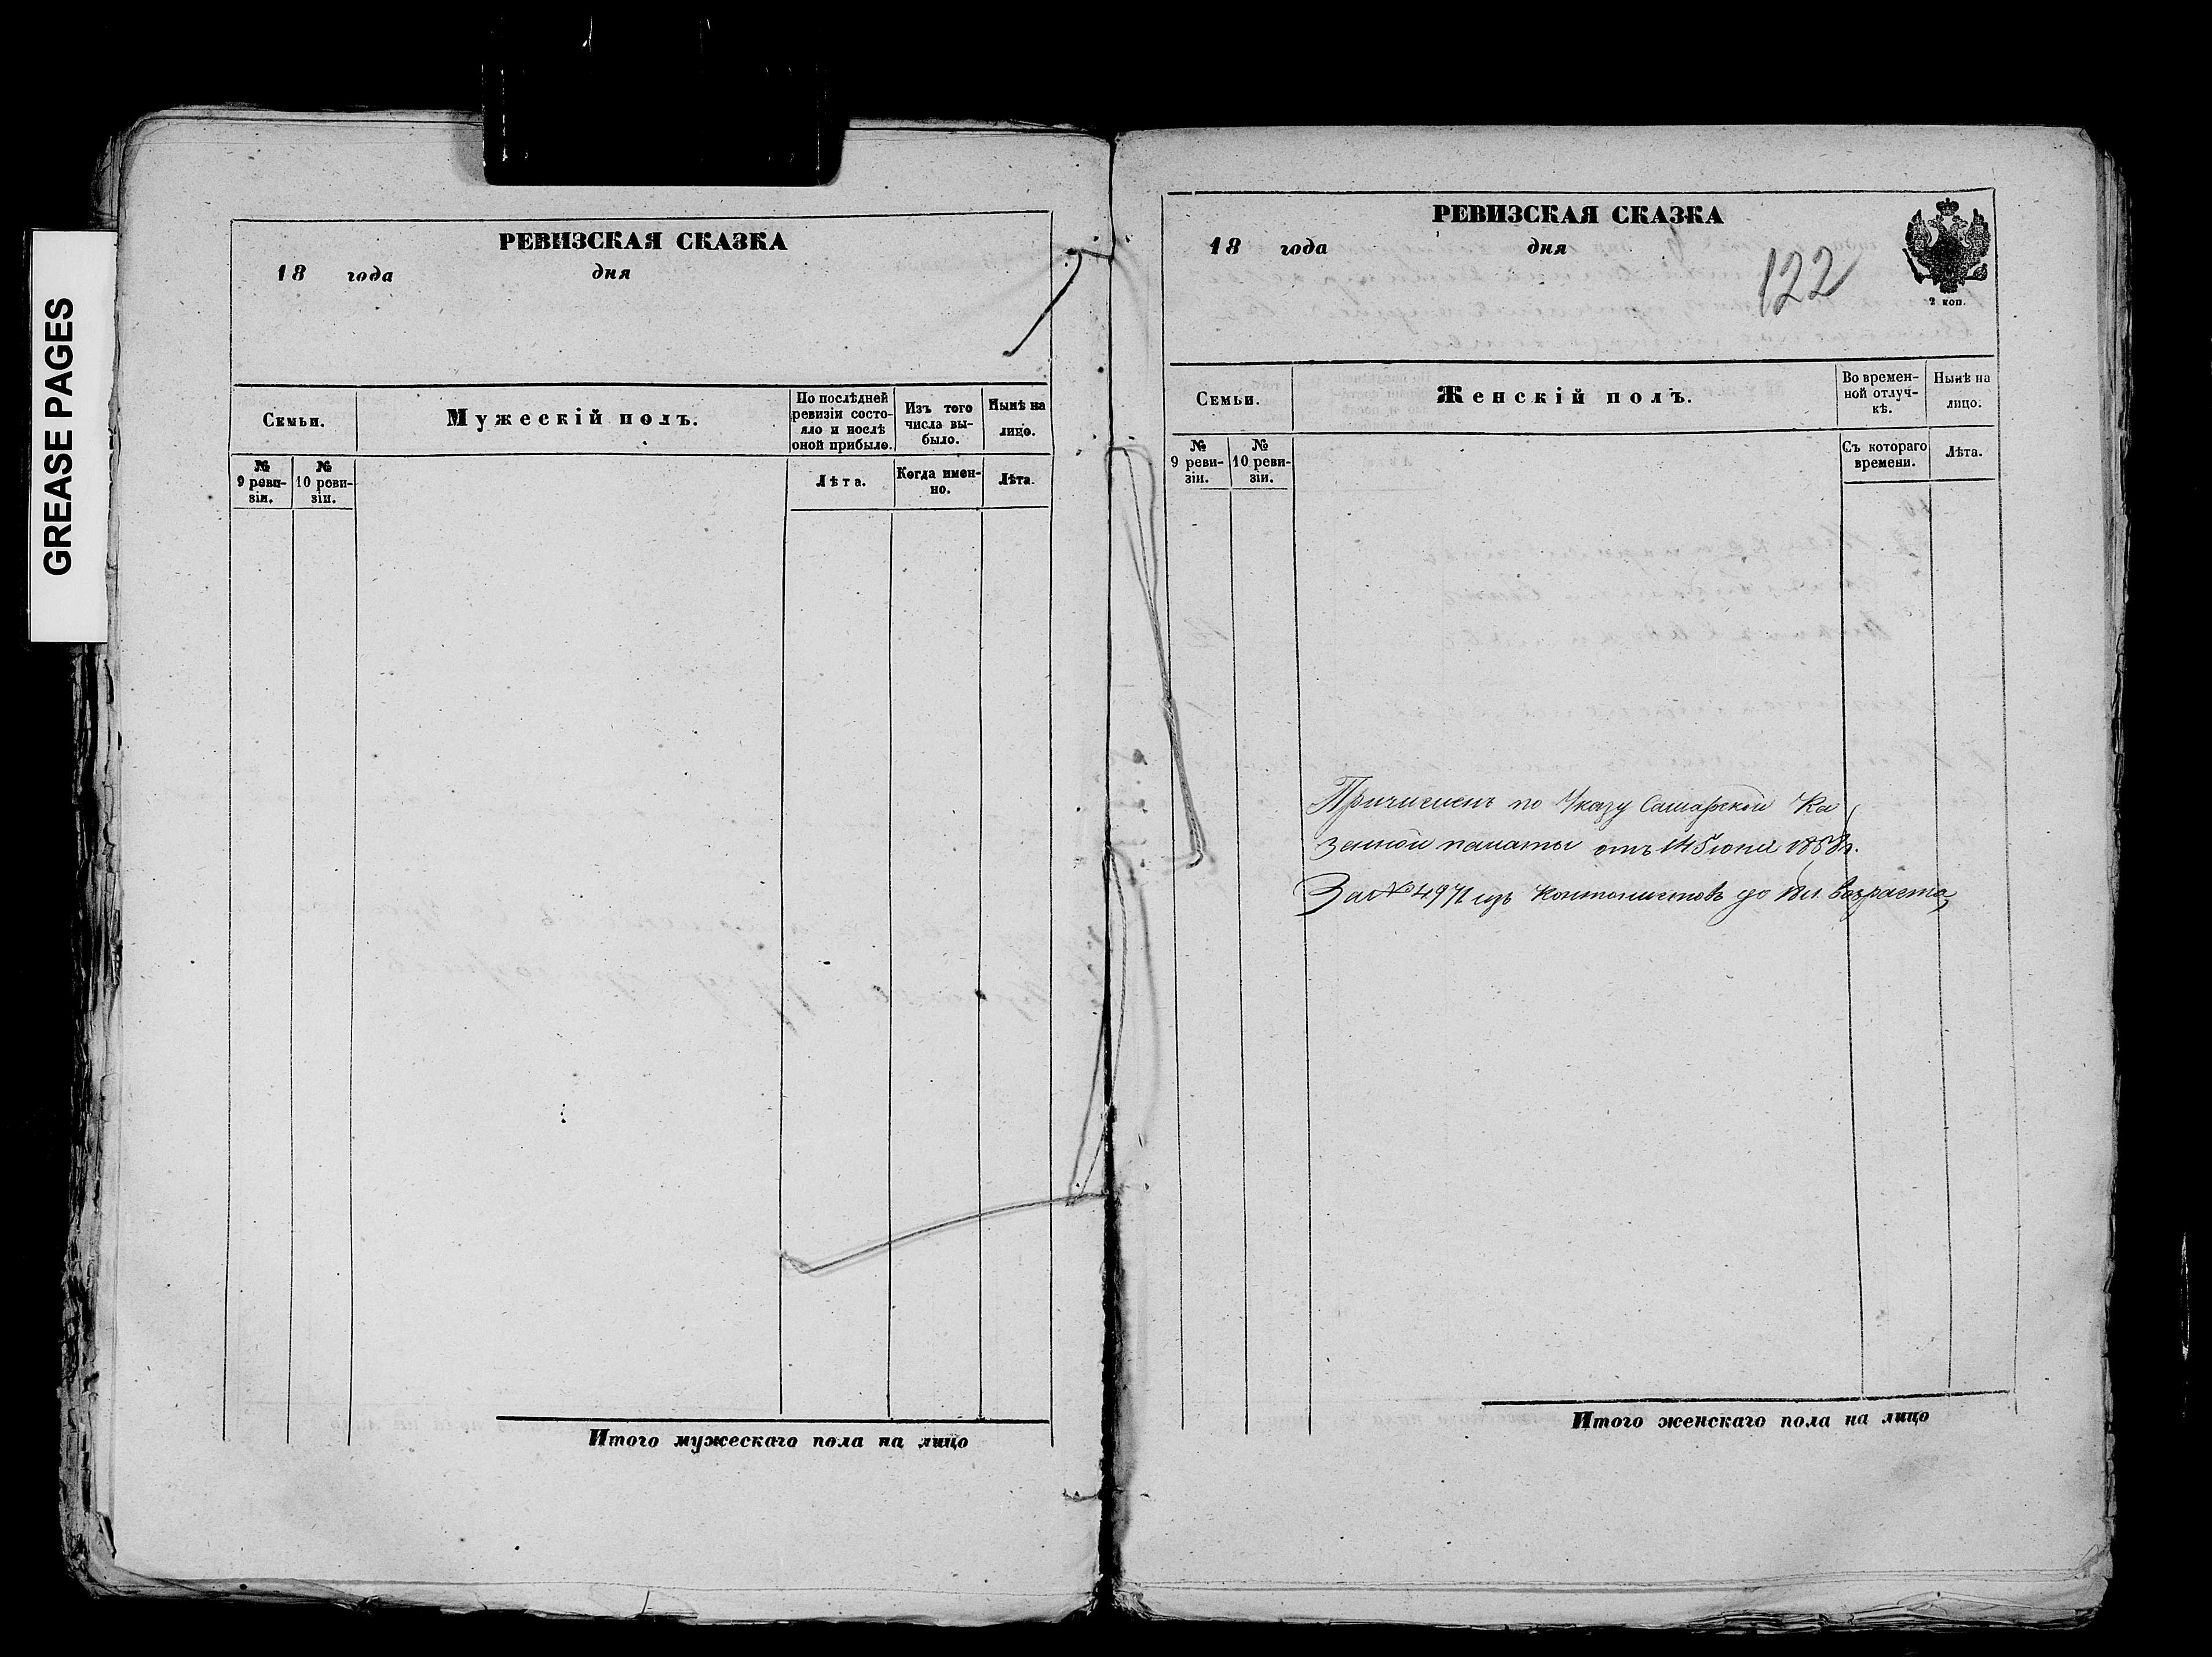 GREASE PAGES
РЕВИЗСКАЯ СКАЗКА
18 года дня
Семьи.
Мужескій полъ.
По послѣдней
ревизіи состо-
яло и послѣ
оной прибыло.
Изъ того
числа вы-
было.
Нынѣ на
лицо.
№
9 реви-
зіи.
№
10 реви-
зіи.
Лѣта.
Когда имен-
но.
Лѣта.
Итого мужескаго пола на лицо
РЕВИЗСКАЯ СКАЗКА
18 года дня
122
2 коп.
Семьи.
Женскій полъ.
Во времен-
ной отлуч-
кѣ.
Нынѣ на
лицо.
№
9 реви-
зіи.
№
10 реви-
зіи.
Съ котораго
времени.
Лѣта.
Причисленъ по Указу Самарской Ка
зенной палаты отъ 14 Іюня 1858 г.
За № 4971 изъ Кантонистовъ до возраста
Итого женскаго пола на лицо